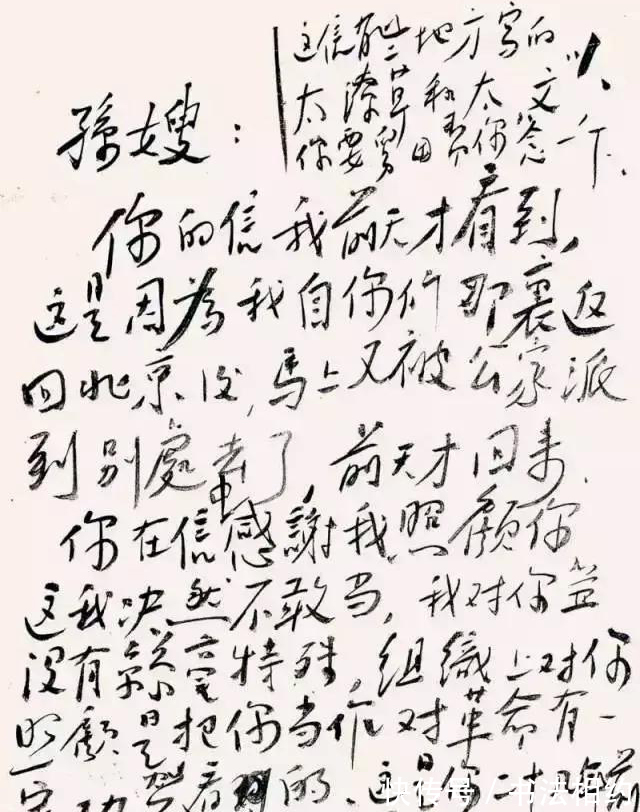 这信有些地方写的
太潦草和太文
你要舅田帮你念一下
孫嫂：
你的信我前天才看到，
这是因為我自你们那裏返
回北京后，馬上又被公家派
到别處去了，前天才回来。
你在信中感謝我照顧你
这我决然不敢当，我对你並
没有絲毫特殊，组織上对你
照顧是把你当作对革命有一
定功 看 的。这是你
快传号/书法相约